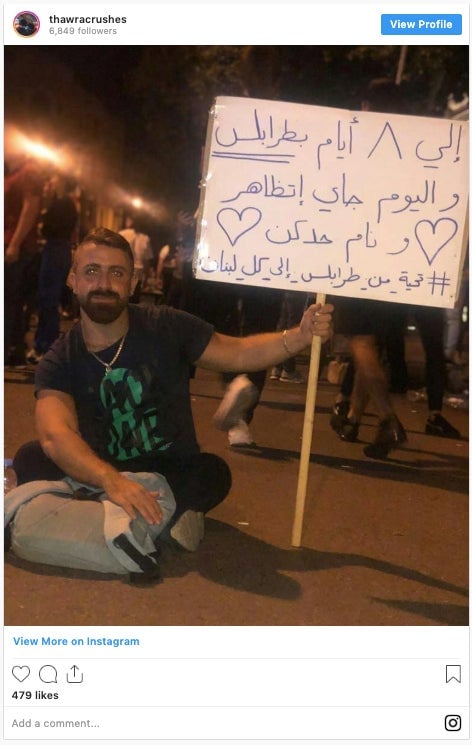 thawracrushes
6,849 followers
View Profile
إلي ٨ أيام بطرابلس
و اليوم جاي إتظاهر
و نام حدكن
#تحية_من_طرابلس_إلى_كل_لبنان
View More on Instagram
479 likes
Add a comment...